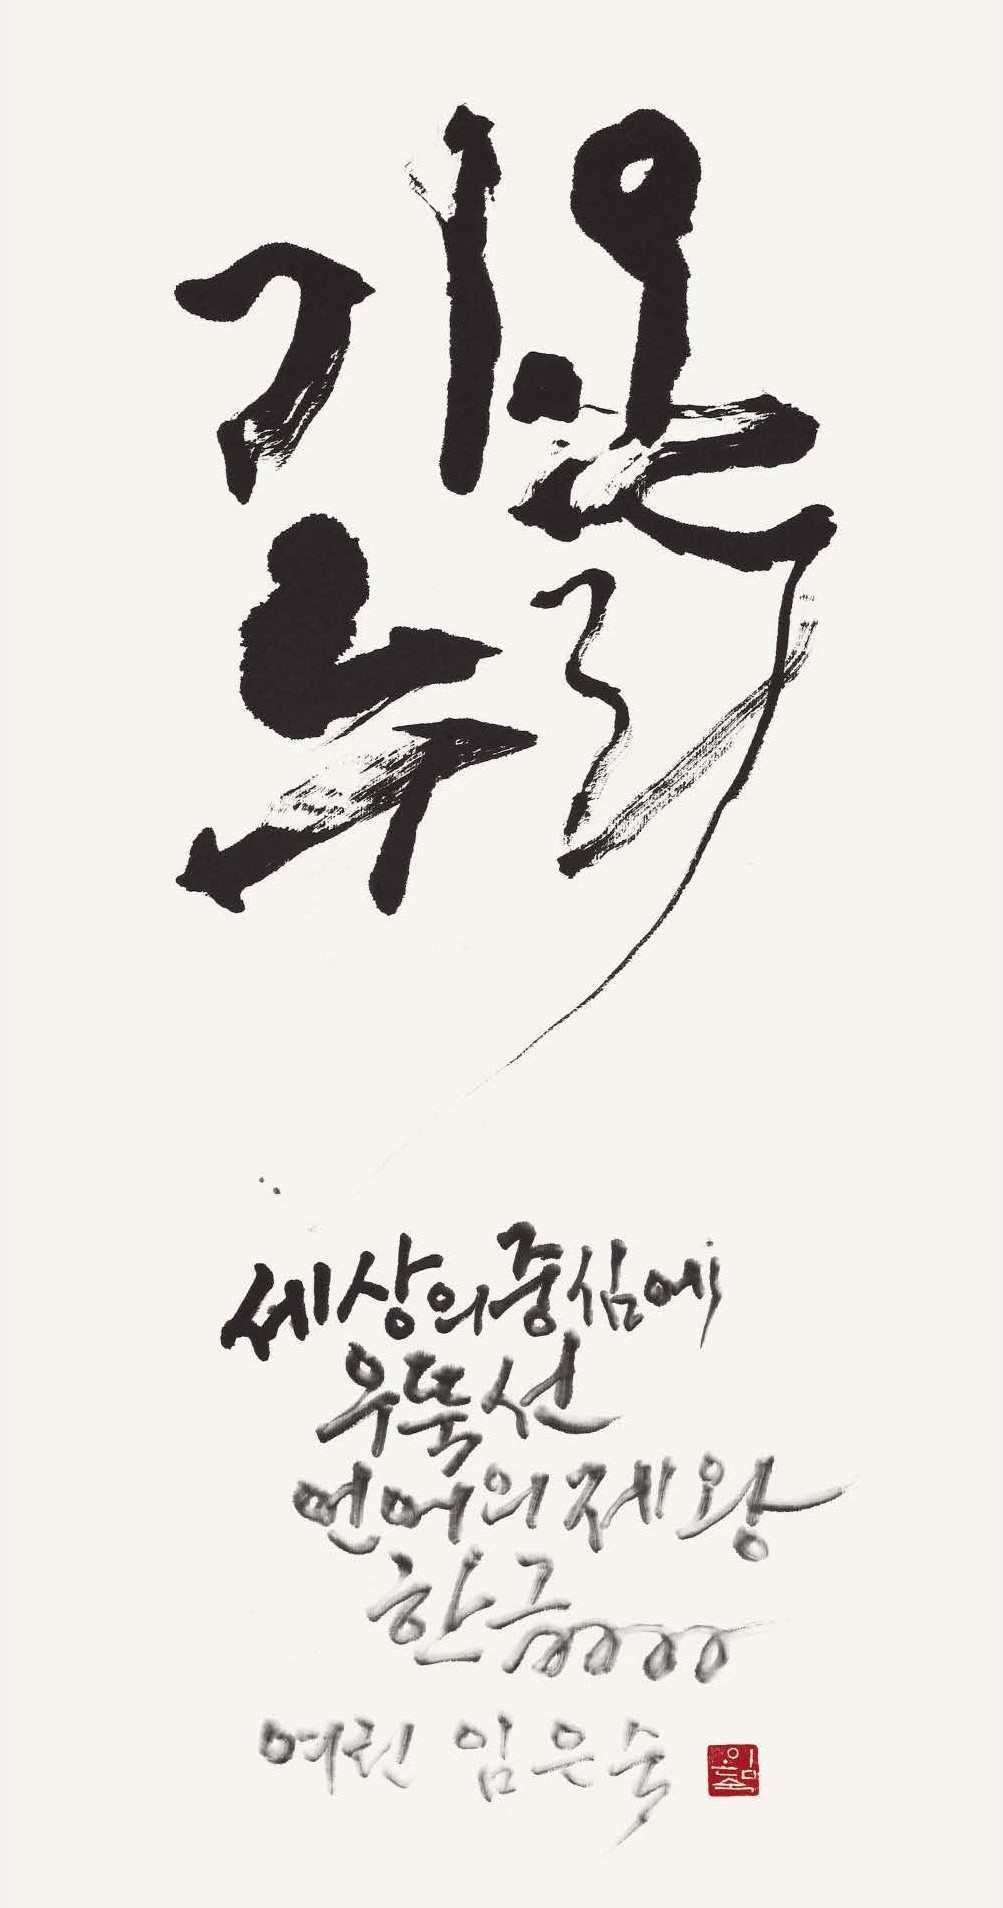 가온
누리
세상의 중심에
우뚝 선
언어의 제왕
한글
여린 임은숙
임은숙